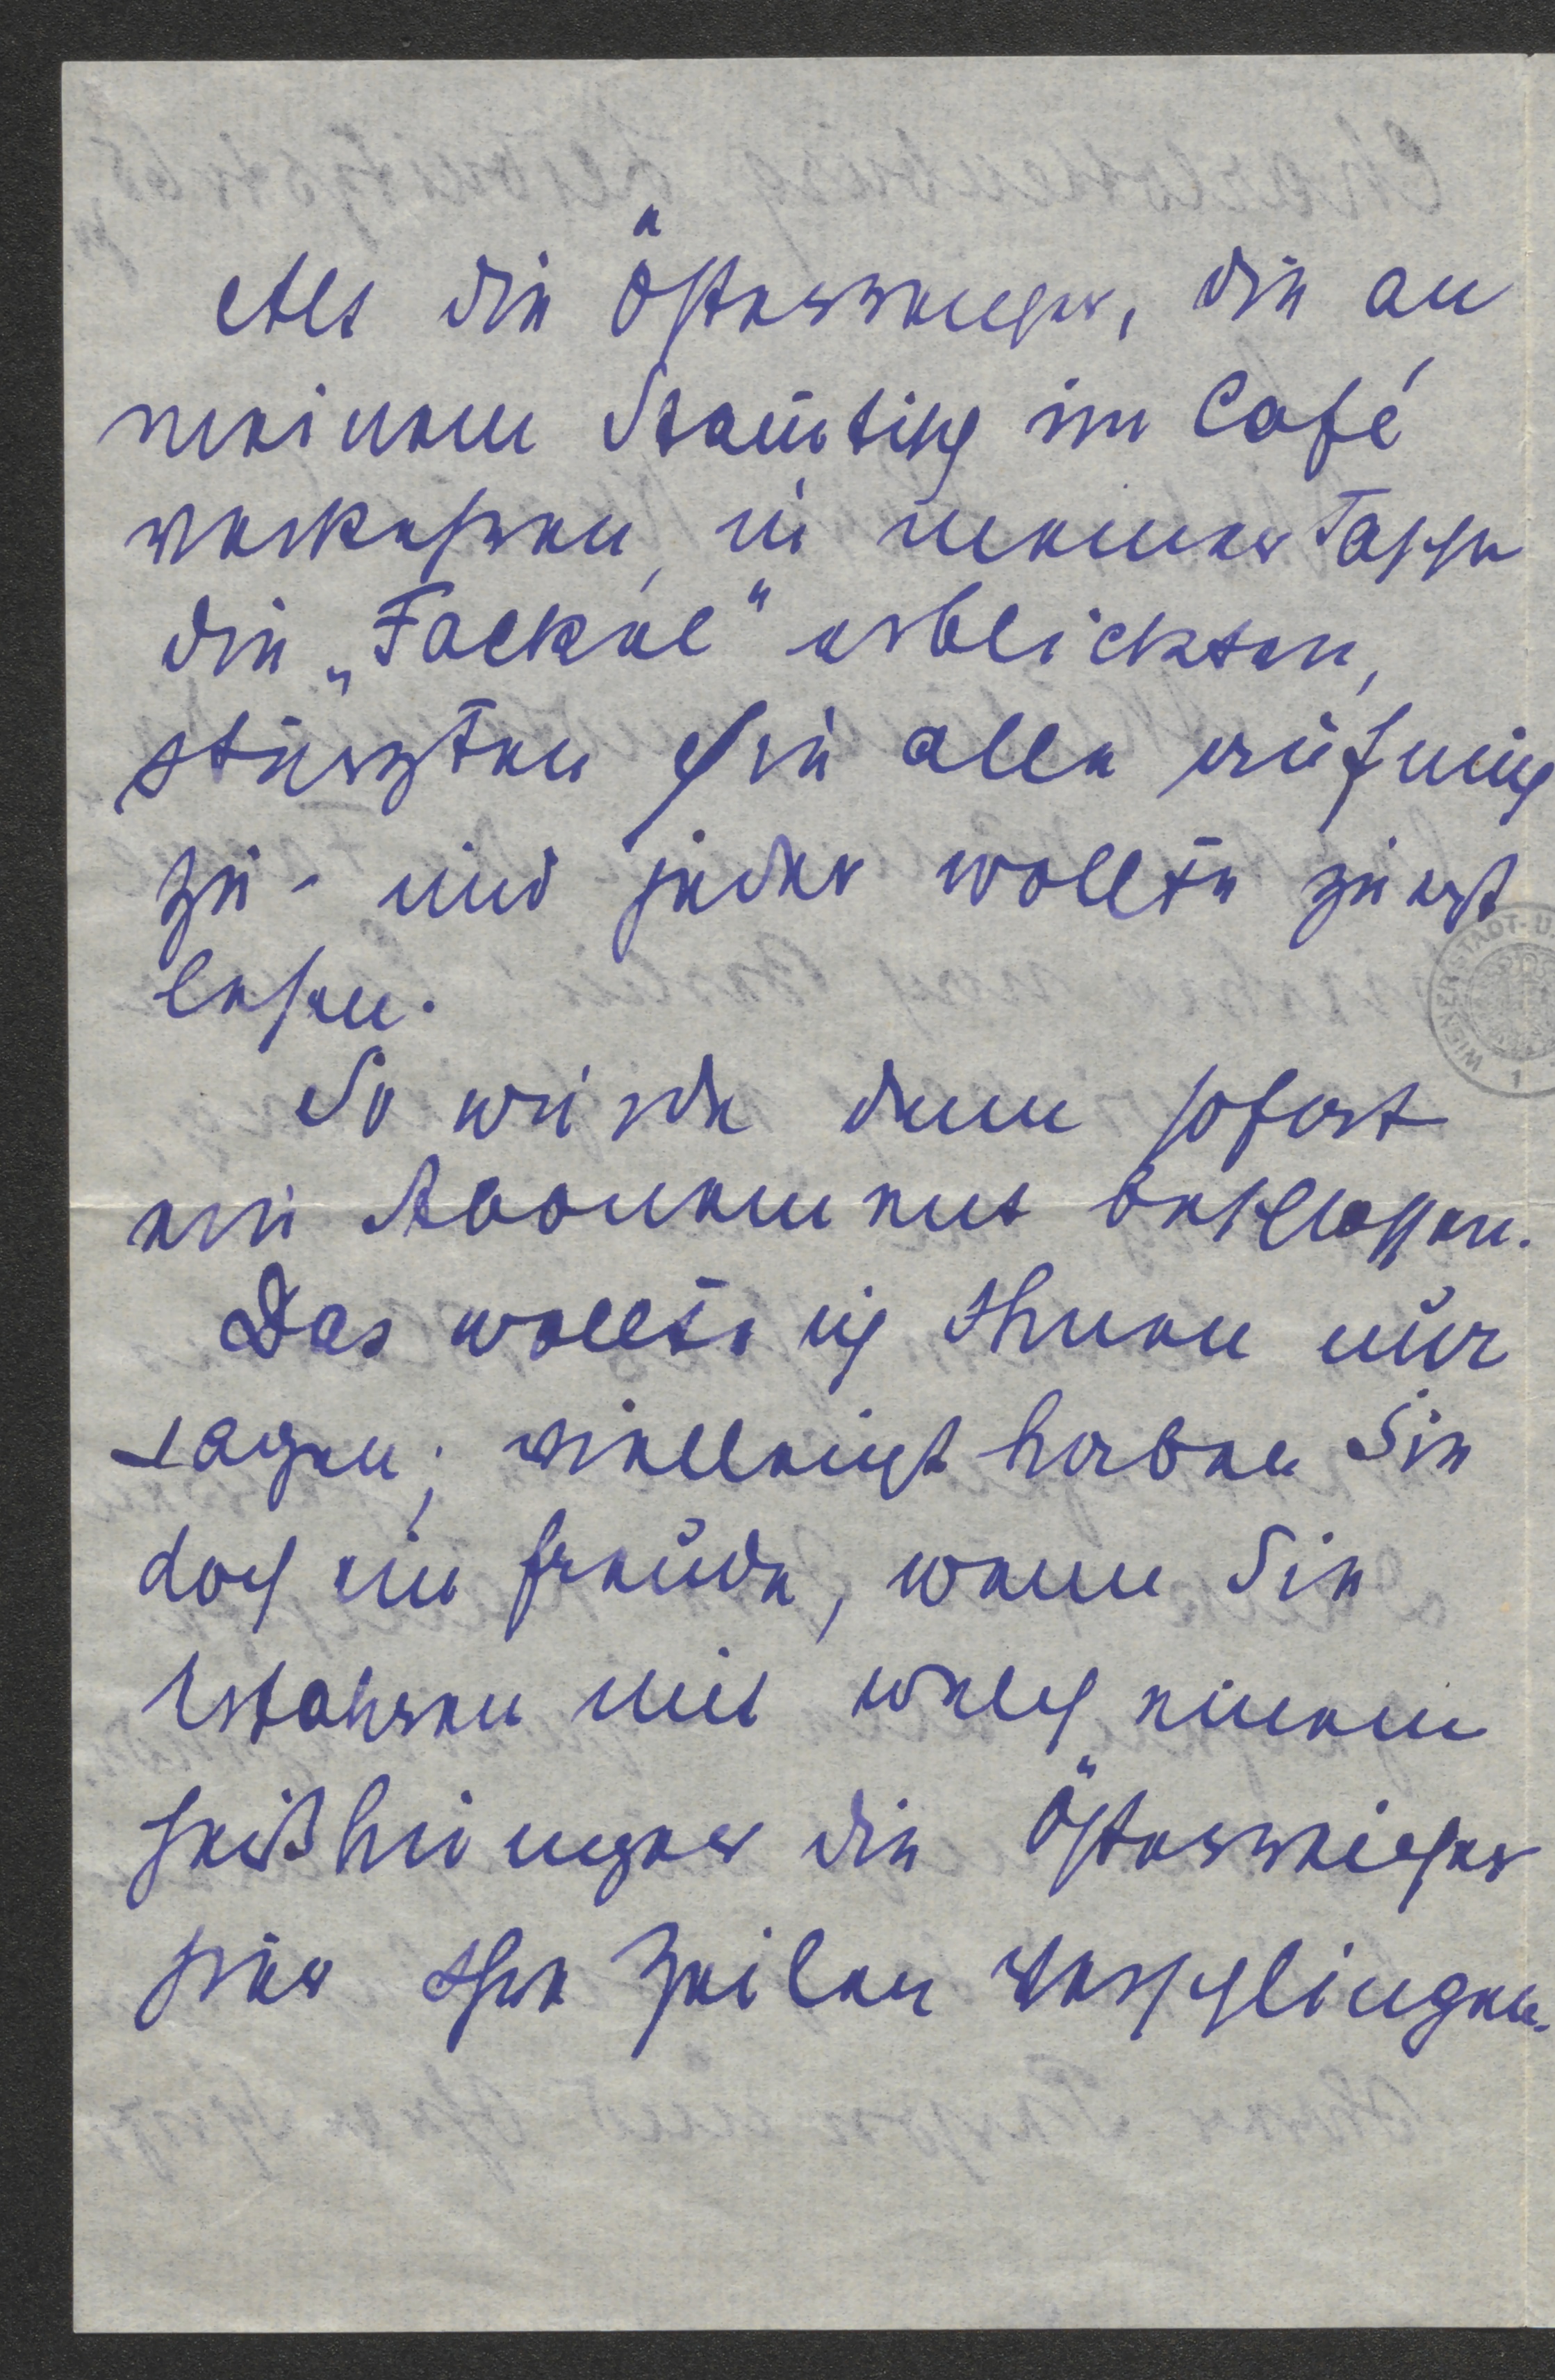 Als die Österreicher, die an
meinem Stam̄tisch im Café
verkehren, in meiner Tasche
die „Fackel" erblickten,
stürzten sie alle auf mich
zu - und jeder wollte zuerst
lesen.
So wurde denn sofort
ein Abonnement beschlossen.
Das wollte ich Ihnen nur
sagen; vielleicht haben Sie
doch eine Freude, wenn Sie
erfahren mit welch einem
Heißhunger die Österreicher
hier Ihre Zeilen verschlingen.
WIENER STADT-U.